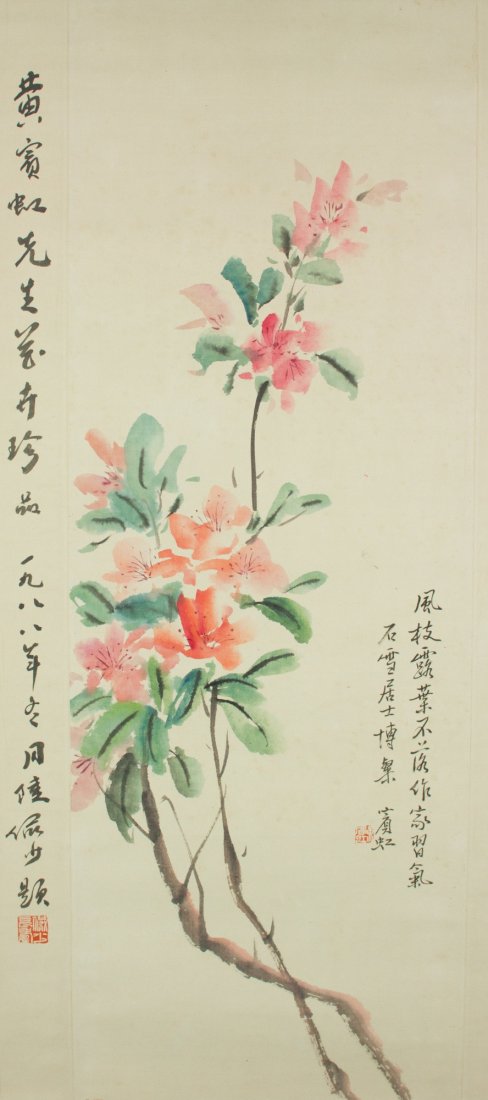 風枝露葉不落作家習氣
石雪居士博粲 賓虹
黄賓虹先生花卉珍品 一九八八年冬月陸儼少題